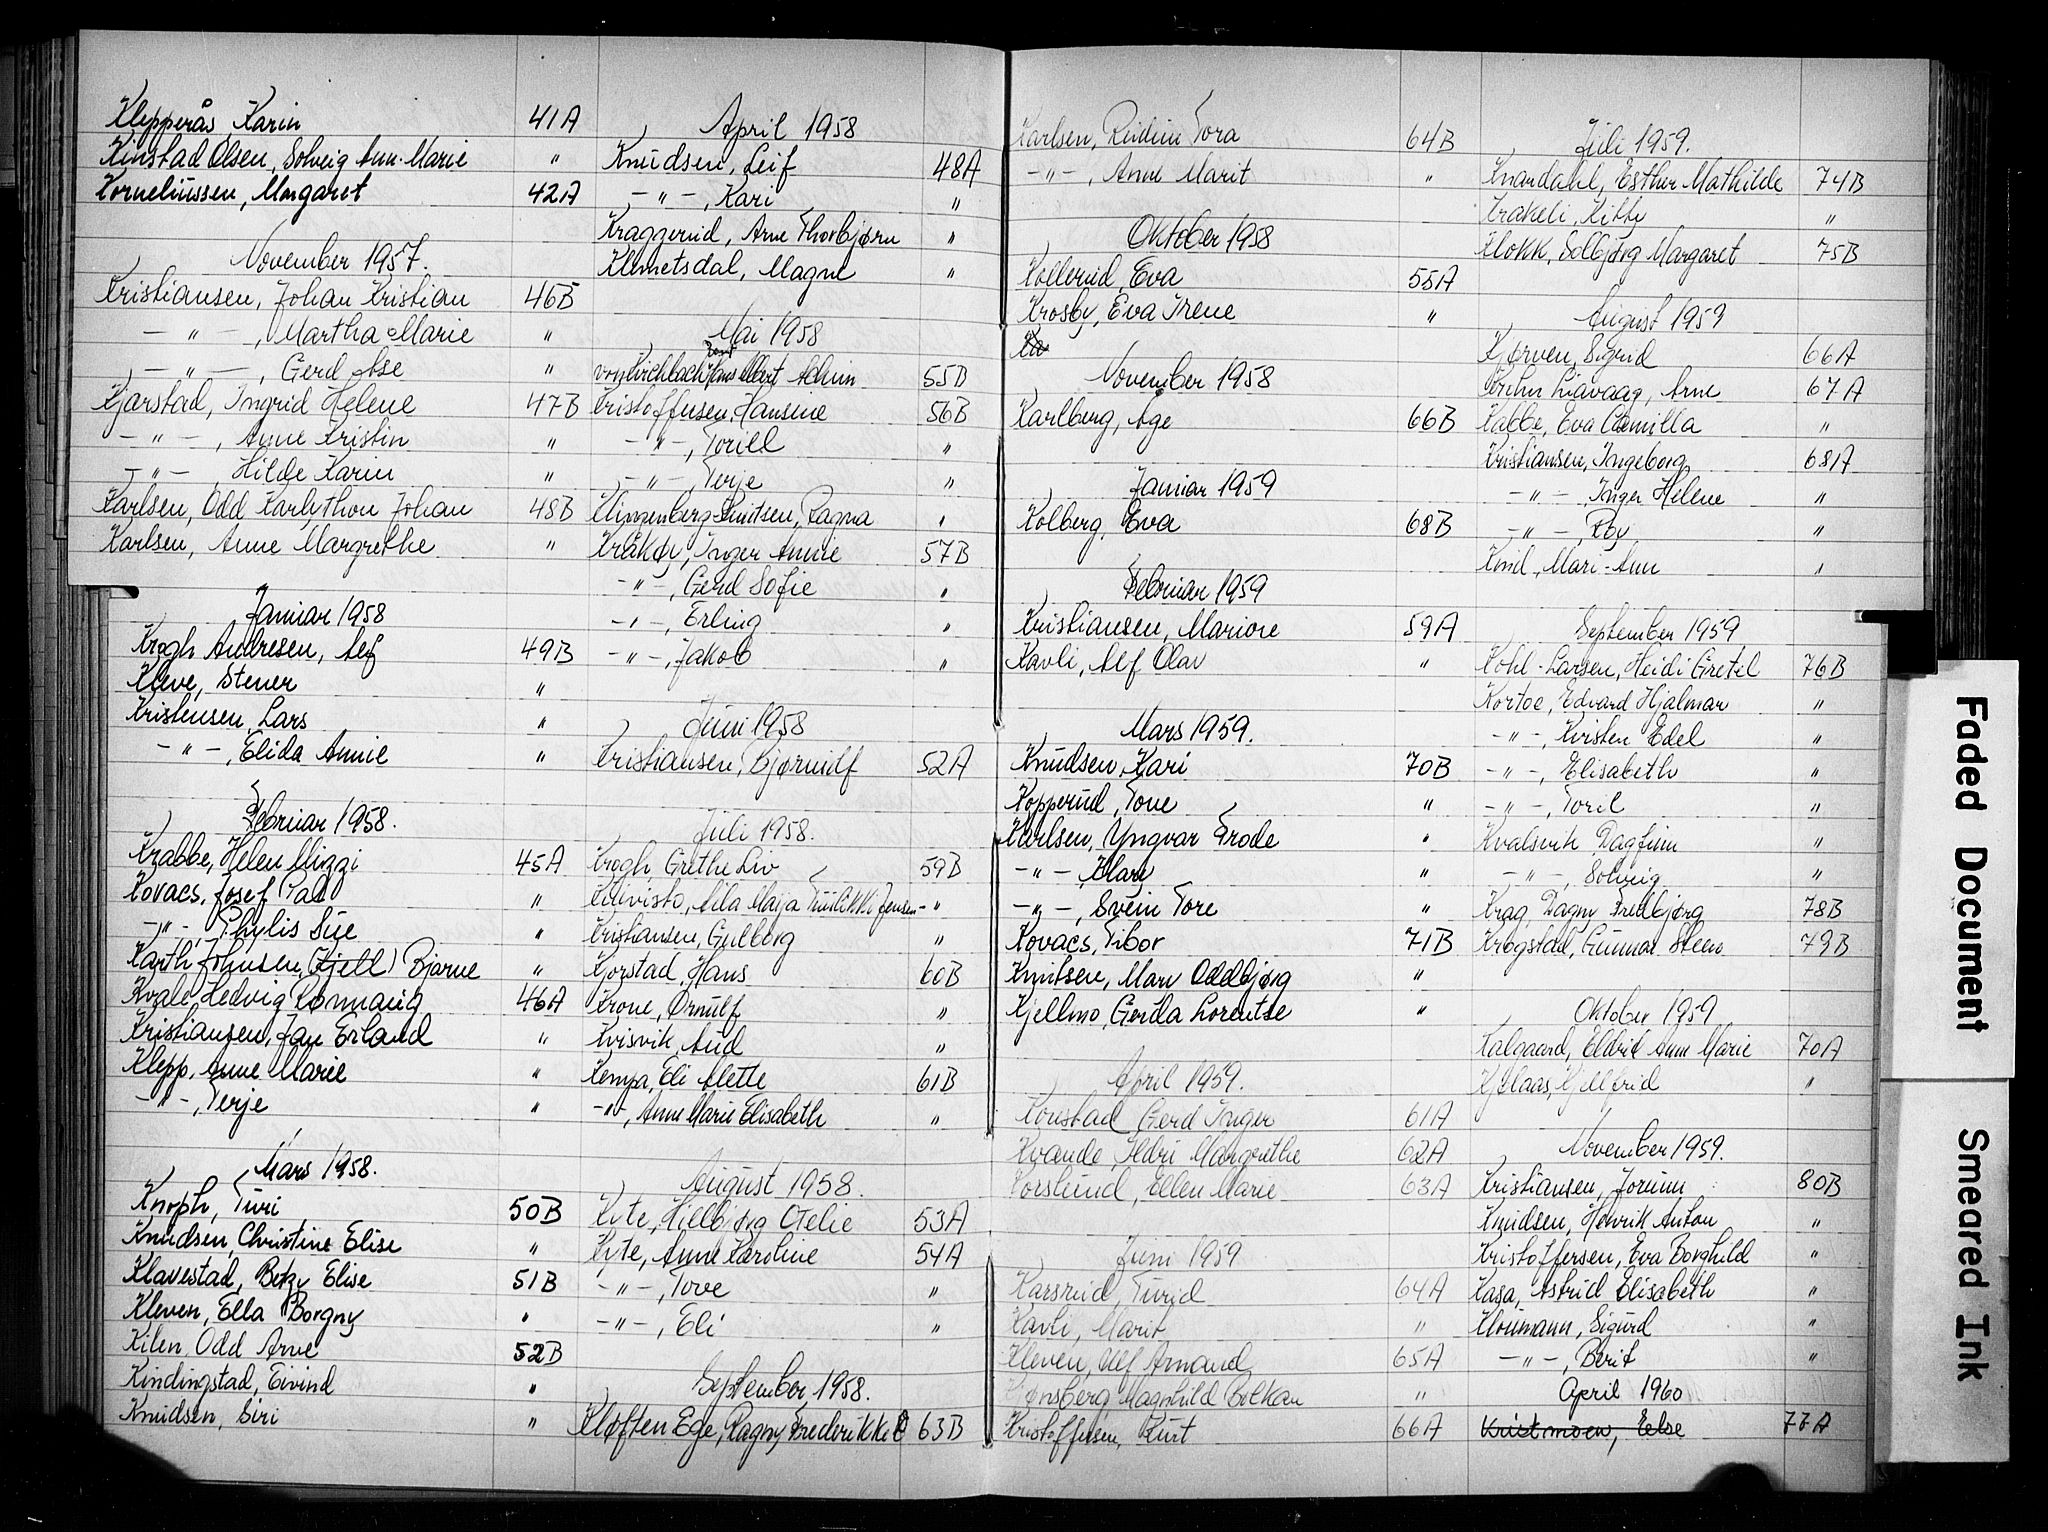 Klepperås, Karin 41A
Kinstad Olsen, Solveig Ann-Marie "
Korneliussen, Margaret 42A
November 1957.
Kristiansen, Johan Kristian 46B
— " —, Martha Marie "
— " —, Gerd Åse "
Kjarstad, Ingrid Helene 47B
— " —, Anne Kristin "
— " —, Hilde Karin "
Karlsen, Odd Karlython Johan 48B
Karlsen, Anne Margrethe "
Januar 1958
Krogh Andresen, Leif 49B
Kleve, Stener "
Kristensen, Lars "
— " —, Elida Annie "
Februar 1958.
Krabbe, Helen Mizzi 45A
Kovacs, Josef Pal "
— " —, Phylis Sue "
Karth Johnsen, (Kjell) Bjarne "
Kvale, Hedvig Rønnaug 46A
Kristiansen, Jan Erland "
Klepp, Anne Marie "
— " —, Terje "
Mars 1958.
Knoph, Turi 50B
Knudsen, Christine Elise "
Klavestad, Betzy Elise 51B
Kleven, Ella Borgny "
Kilen, Odd Arne 52B
Kindingstad, Eivind "
Knudsen, Siri "
April 1958
Knudsen, Leif 48A
— " —, Kari "
Kraggerud, Arne Thorbjørn "
Klemetsdal, Magne "
Mai 1958
von Kirchbach, Hans Albert Achim 55B
Kristoffersen, Hansine 56B
— " —, Torill "
— " —, Terje "
Klingenberg-Knutsen, Ragna "
Kråkør, Inger Annie 57B
— " —, Gerd Sofie "
— " —, Erling "
— " —, Jakob "
Juni 1958
Kristiansen, Bjørnulf 52A
Juli 1958.
Krogh, Grethe Liv 59B
Koivisto, Aila Maija Tuulikki Jensen "
Kristiansen, Gulborg "
Kjorstad, Hans 60B
Krone, Ørnulf "
Kvisvik, Aud "
Kenya, Eli Alette 61B
— " —, Anne Marie Elisabeth "
August 1958.
Kyte, Hillbjørg Otelie 53A
Kyte, Anne Karoline 54A
— " —, Tove "
— " —, Eli "
September, 1958.
Kløften Ege, Ragny Fredrikke 63B
Karlsen, Rudine Tora 64B
— " —, Anne Marit "
Oktober 1958
Kollerud, Eva 55A
Krosby, Eva Irene "
Ka
November 1958
Karlberg, Åge 66B
Januar 1959
Kolberg, Eva 68B
Februar 1959
Kristiansen, Marione 59A
Kavli, Alf Olav "
Mars 1959.
Knudsen, Kari 70B
Kopperud, Tove "
Karlsen, Yngvar Frode "
— " —, Klary "
— " —, Svein Tore "
Kovacs, Tibor 71B
Knutsen, Mary Oddbjørg "
Kjellmo, Gerda Lorentse "
April 1959.
Konstad, Gerd Inger 61A
Kvande, Ildri Margrethe 62A
Korslund, Ellen Marie 63A
Juni 1959
Karsrud, Turid 64A
Kavli, Marit "
Kleven, Ulf Amand 65A
Kjønsberg, Magnhild Bolkan "
Kristoffersen, Kurt 66A
Juli 1959.
Knardahl, Esther Mathilde 74B
Krakeli, Kitty "
Klokk, Solbjørg Margaret 75B
August 1959
Kjørven, Sigrid 66A
Krehn Liavaag, Arne 67A
Kabbe, Eva Camilla "
Kristiansen, Ingeborg 68A
— " —, Inger Helene "
— " —, Roy "
Kind, Mari-Ann "
September 1959
Kohl-Larsen, Heidi Gretel 76B
Kortoe, Edvard Hjalmar "
— " —, Kirsten Edel "
— " —, Elisabeth "
— " —, Toril "
Kvalsvik, Dagfinn "
— " —, Solveig "
Krag, Dagny Fredbjørg 78B
Krogstad, Gunnar Steen 79B
Oktober 1959
Kalgaard, Eldrid Anne Marie 70A
Kjelaas, Kjellfrid "
November 1959.
Kristiansen, Jorunn 80B
Knudsen, Henrik Anton "
Kristoffersen, Eva Borghild "
Kasa, Astrid Elisabeth "
Kloumann, Sigurd "
— " —, Berit "
April 1960
Kristmoen, Else 77A
Faded Document
Smeared Ink